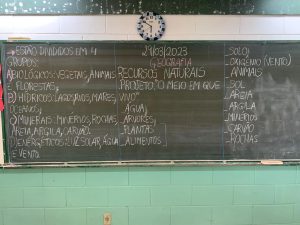 → ESTÃO DIVIDIDOS EM 4
GRUPOS:
A) BIOLÓGICOS: VEGETAIS, ANIMAIS
E FLORESTAS;
B) HÍDRICOS: LAGOS, RIOS, MARES,
OCEANOS;
C) MINERAIS: MINÉRIOS, ROCHAS,
AREIA, ARGILA, CARVÃO.
D) ENERGÉTICOS: LUZ SOLAR, ÁGUA
E VENTO.
/03/2023
GEOGRAFIA
RECURSOS NATURAIS
PROJETO: "O MEIO EM QUE
VIVO"
ÁGUA;
ÁRVORES;
PLANTAS
ALIMENTOS
SOLO;
OXIGÊNIO (VENTO)
ANIMAIS
SOL
AREIA
ARGILA
MINÉRIOS
CARVÃO
ROCHAS